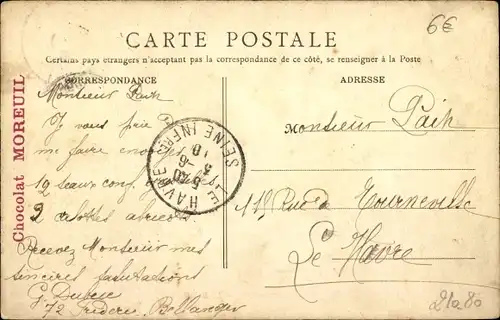 6€
CARTE POSTALE
Certains pays étrangers n'acceptant pas la correspondance de ce côté, se renseigner à la Poste
CORRESPONDANCE
ADRESSE
Chocolat MOREUIL
Monsieur Paih
Je vous prie
me faire
12 seaux conf
2
Recevez Monsieur mes
sincères salutations
G. Dubuc
72 Frederic Bellanger
LE HAVRE
SEINE INFRE
Monsieur Paih
11 Rue de Tourneville
Le Havre